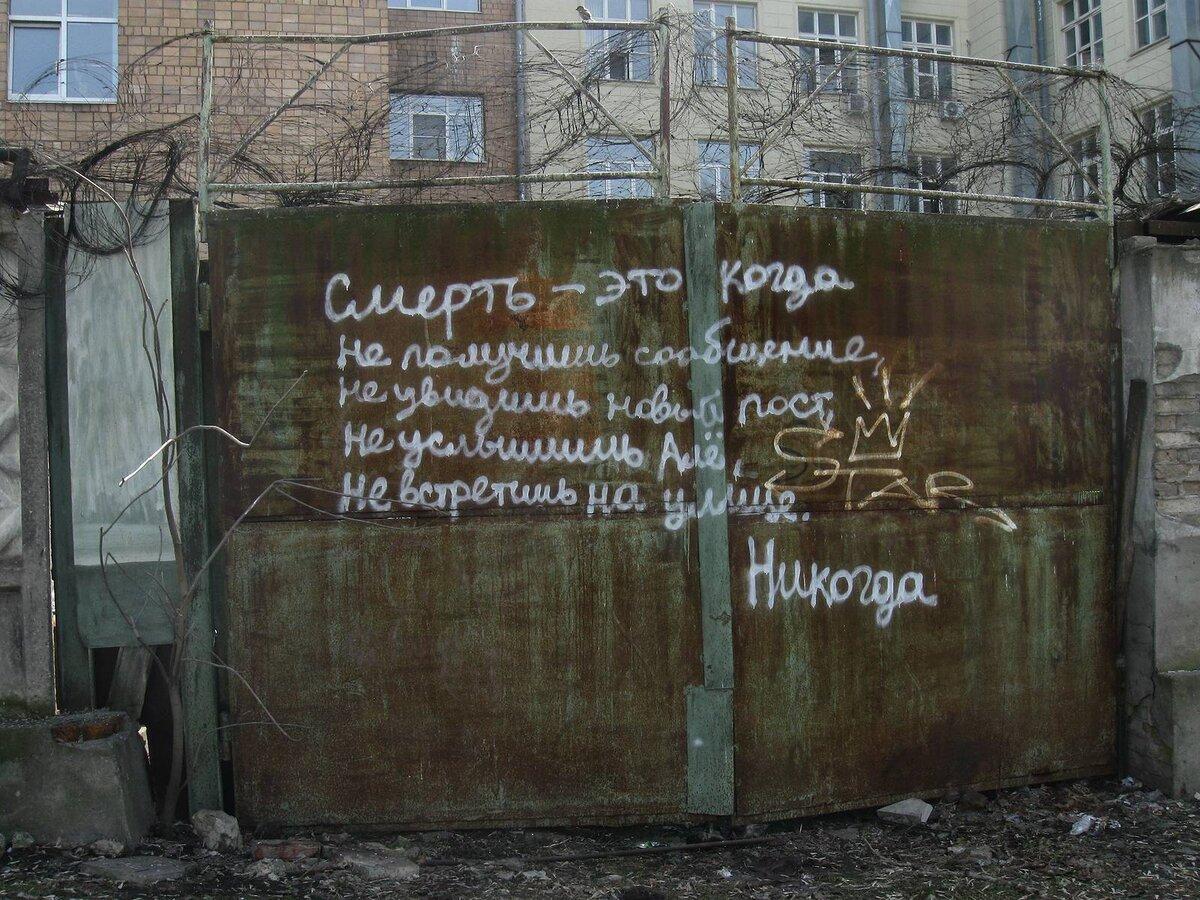 Смерть - это когда
не получишь сообщение,
не увидишь новый пост,
не услышишь Алё,
не встретишь на улице.
Никогда
STAR